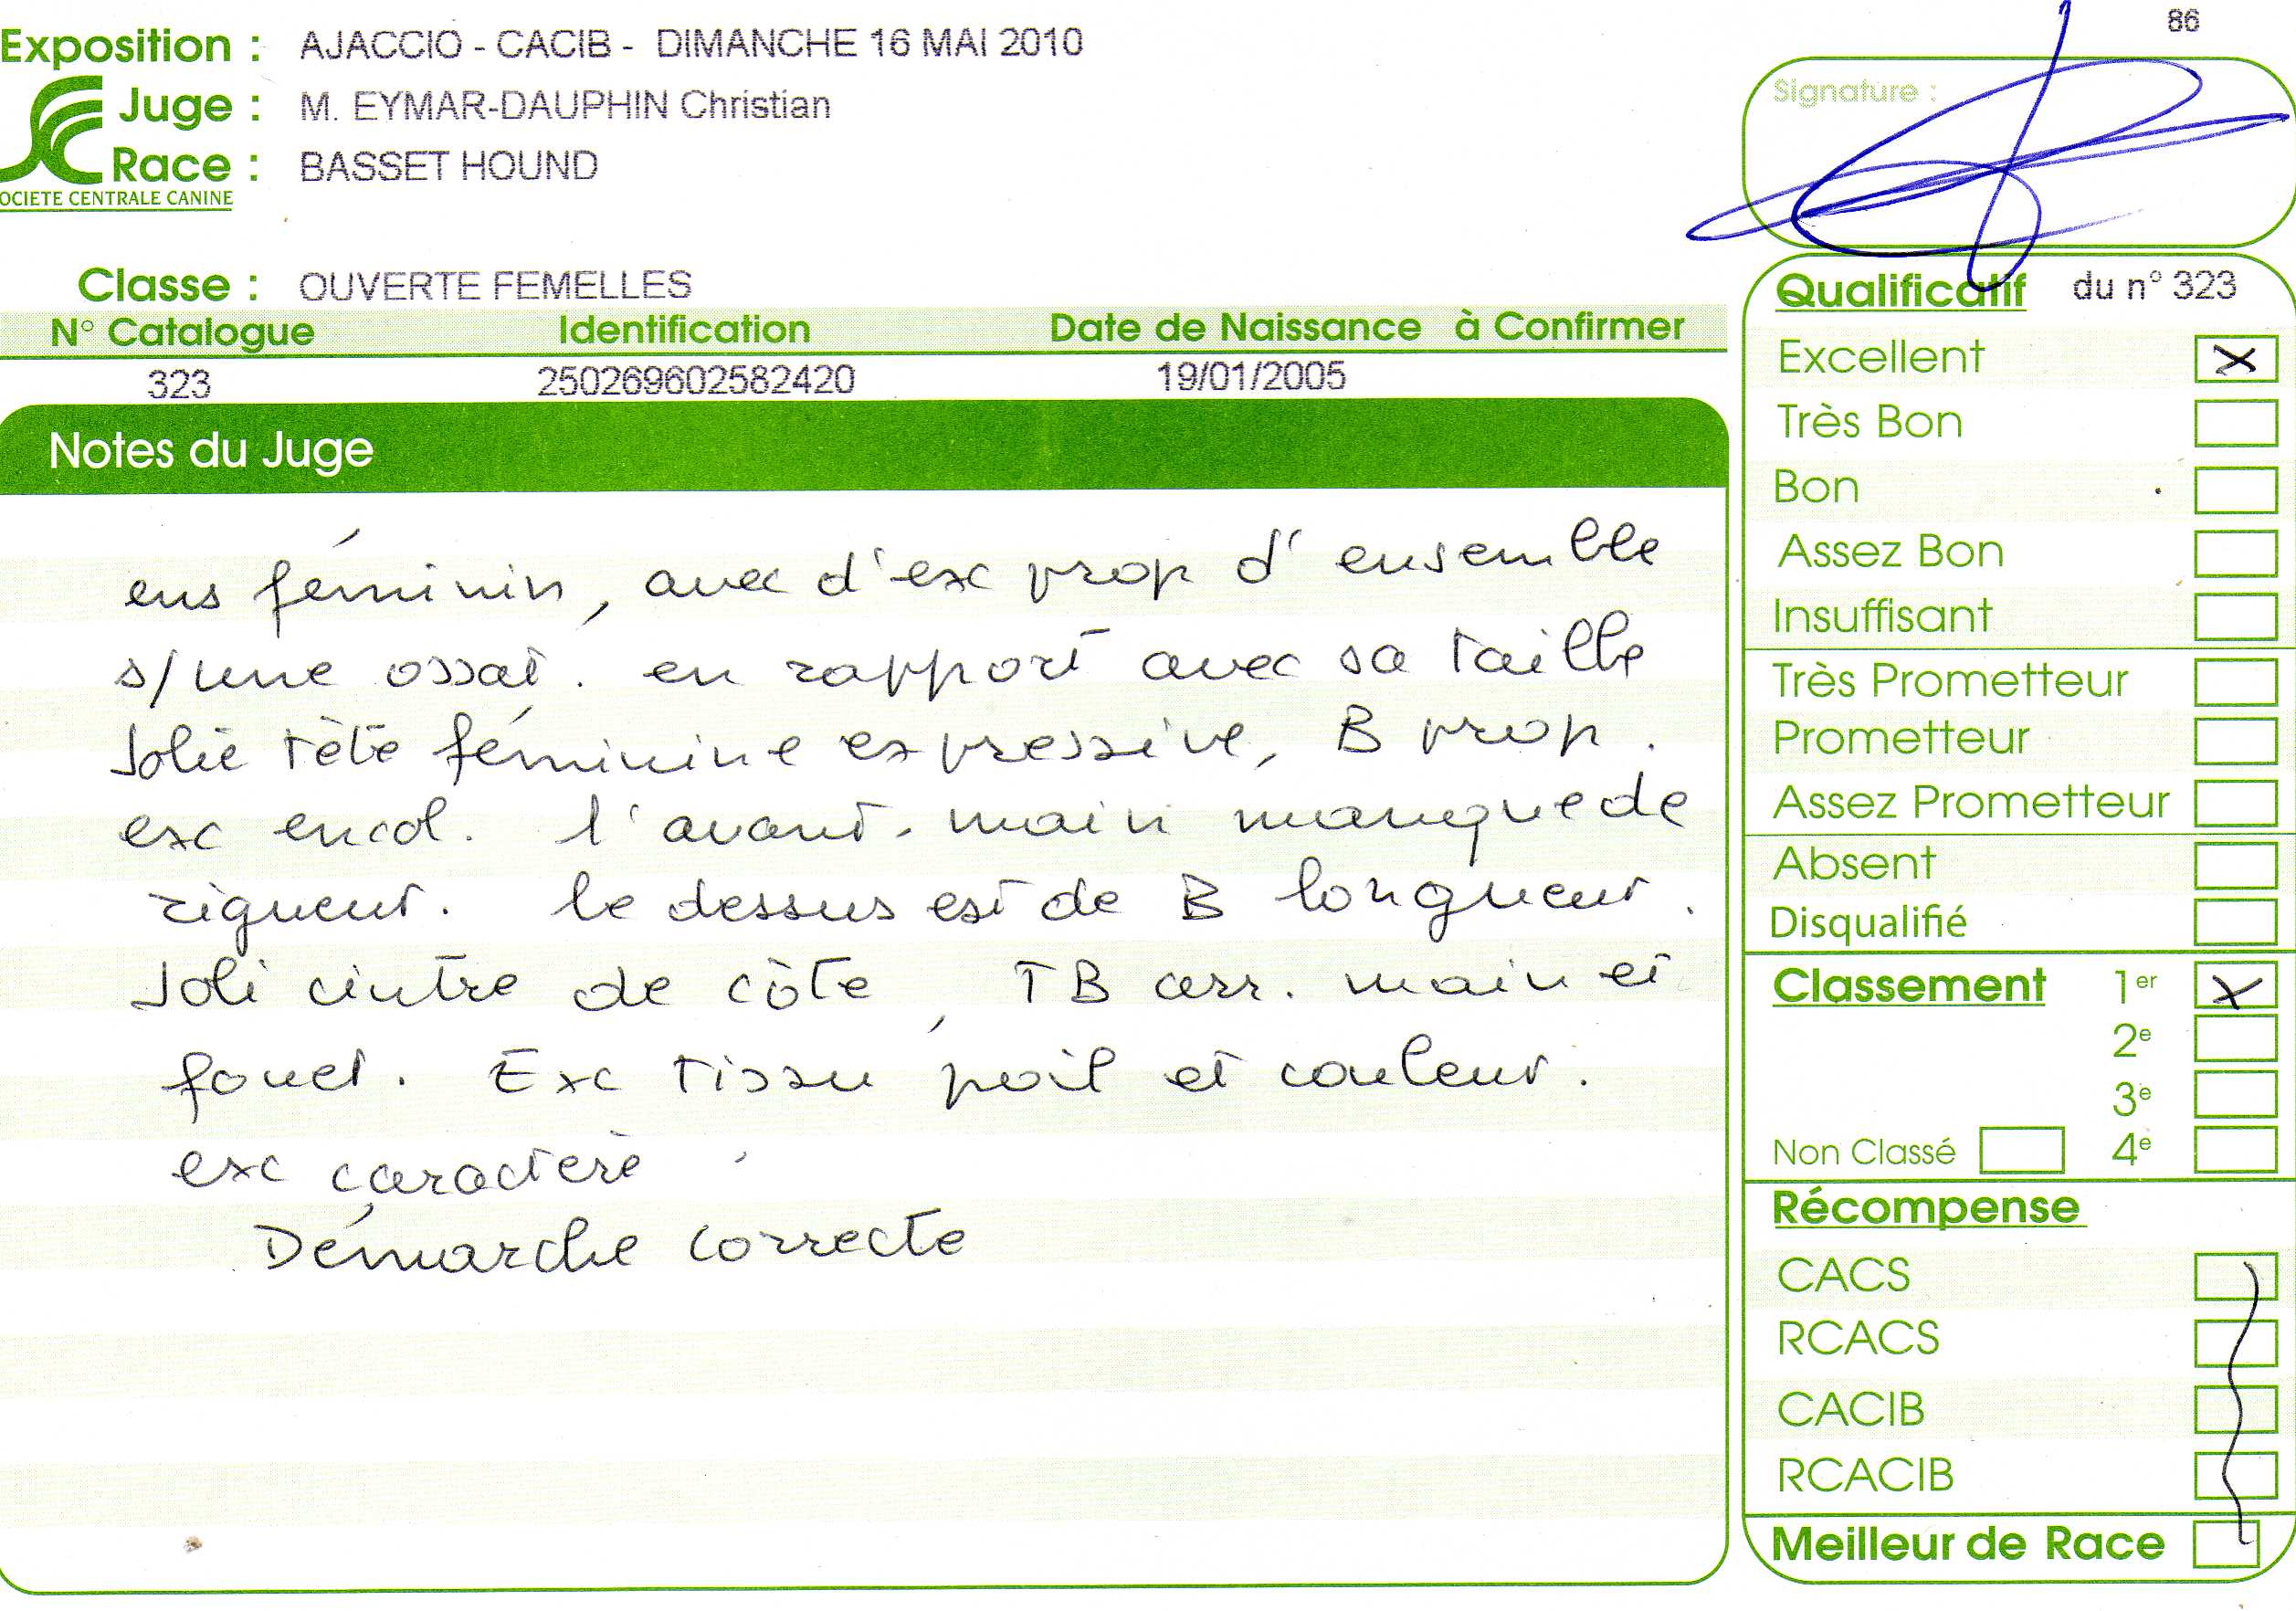 86
Exposition : AJACCIO - CACIB - DIMANCHE 16 MAI 2010
Juge : M. EYMAR-DAUPHIN Christian
Race : BASSET HOUND
OCIETE CENTRALE CANINE
Signature :
Classe : OUVERTE FEMELLES
N° Catalogue Identification Date de Naissance à Confirmer
323 250269602582420 19/01/2005
Notes du Juge
ens féminin, avec d'exc prop d'ensemble
s/une ossat. en rapport avec sa taille
Jolie tête féminine expressive, B prop.
exc encol. l'avant-main manque de
rigueur. le dessus est de B longueur.
Joli cintre de côte, TB arr. main et
fouet. Exc tissu poil et couleur.
exc caractère.
Démarche correcte
Qualificatif du n° 323
Excellent X
Très Bon
Bon
Assez Bon
Insuffisant
Très Prometteur
Prometteur
Assez Prometteur
Absent
Disqualifié
Classement 1er X
2e
3e
Non Classé 4e
Récompense
CACS
RCACS
CACIB
RCACIB
Meilleur de Race